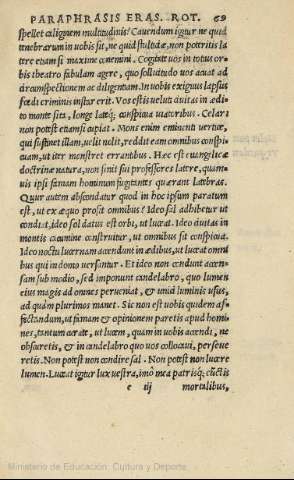 PARAPHRASIS ERAS. ROT. 69
spellet caliginem multitudinis? Cauendum igitur ne quid
tenebrarum in uobis sit, ne quid stultitiæ, nam non potritis la
tere etiam si maxime conemini. Cogitate uos in totius or-
bis theatro fabulam agere, quo sollicitudo uos acuat ad
circumspectionem ac diligentiam. In uobis exiguus lapsus
fœdi criminis instar erit. Vos estis ueluti ciuitas in ædi-
to monte sita, longe lateq; conspicua uiatoribus. Celari
non potest etiamsi cupiat. Mons enim eminenti uertice,
qui sustinet illam, uelit nolit, reddit eam omnibus conspi
cuam, ut iter monstret errantibus. Hæc est euangelicæ
doctrinæ natura, non sinit sui professores latere, quam-
uis ipsi famam hominum fugitantes quærant latebras.
Quur autem abscondatur quod in hoc ipsum paratum
est, ut ex æquo prosit omnibus? Ideo sal adhibetur ut
condiat, ideo sol datus est orbi, ut luceat. Ideo ciuitas in
montis cacumine construitur, ut omnibus sit conspicua.
Ideo noctu lucernam accendunt in ædibus, ut luceat omni
bus qui in domo uersantur. Et ideo non condunt accen-
sam sub modio, sed imponunt candelabro, quo lumen
eius magis ad omnes perueniat, & unius luminis usus,
ad quàm plurimos manet. Sic non est uobis quidem af-
fectandum, ut famam & opinionem paretis apud homi
nes, tantum curate, ut lucem, quam in uobis accendi, ne
obscuretis, & in candelabro quo uos collocaui, perseue
retis. Non potest non condire sal. Non potest non lucere
lumen. Luceat igitur lux uestra, imò mea patrisq; cunctis
e iij mortalibus,
Ministerio de Educación, Cultura y Deporte